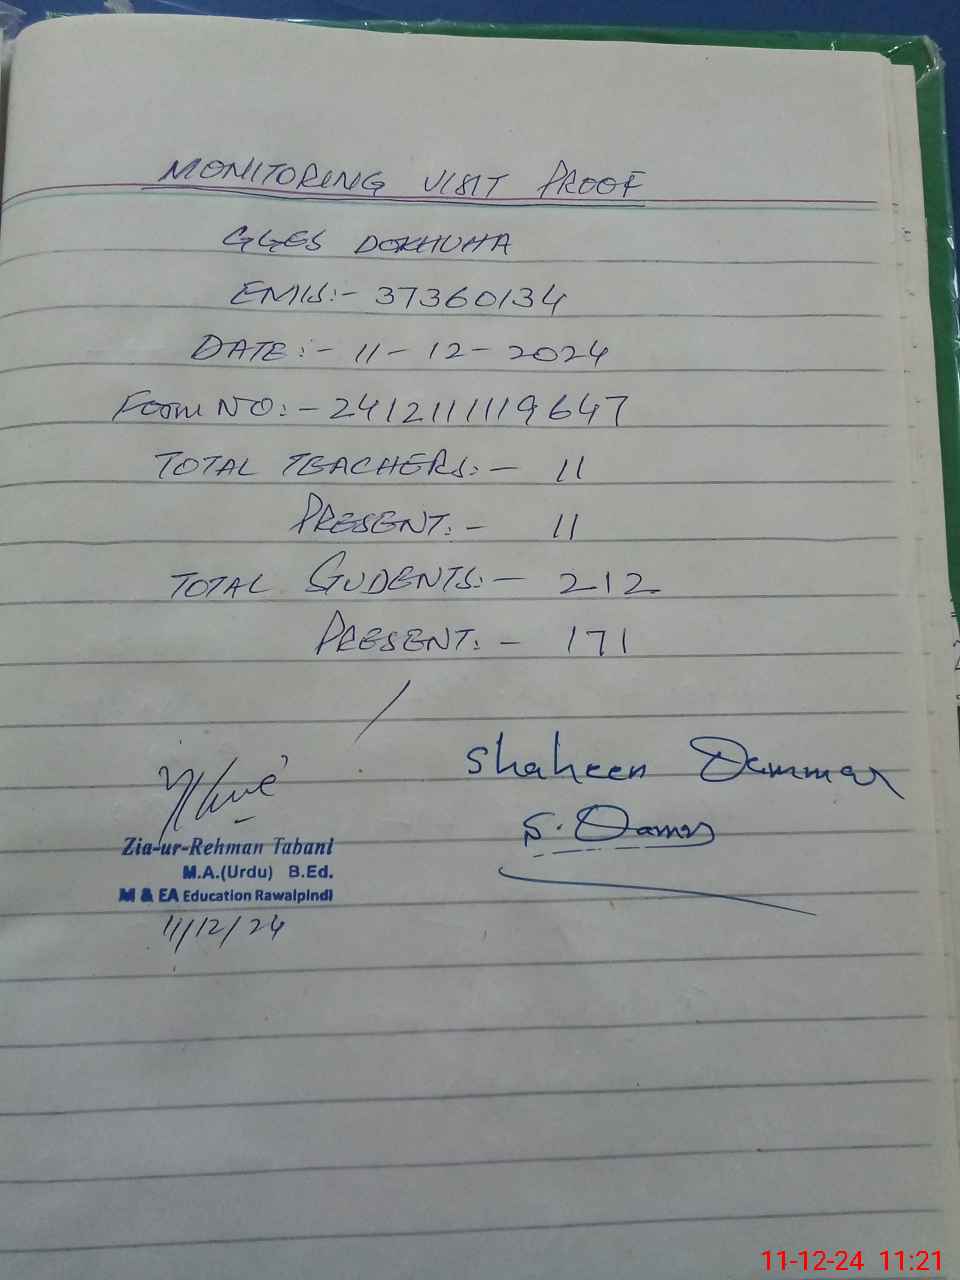 MONITORING VISIT PROOF
GGES DOKHUHA
EMIS:- 37360134
DATE:- 11-12-2024
Form NO:- 2412111119647
TOTAL TEACHERS:- 11
PRESENT:- 11
TOTAL STUDENTS:- 212
PRESENT:- 171
Shaheen
S.
Zia-ur-Rehman Tabani
M.A.(Urdu) B.Ed.
M & EA Education Rawalpindi
11/12/24
11-12-24 11:21